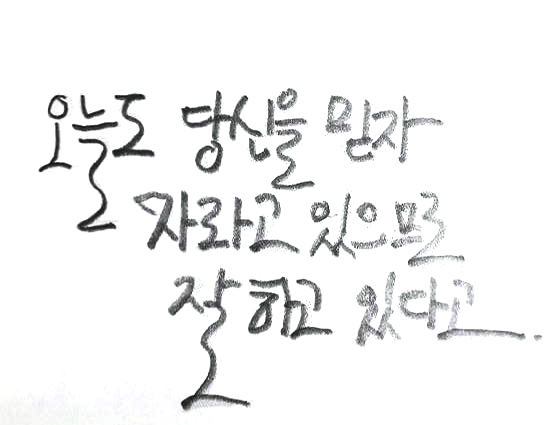 오늘도 당신을 믿자
자라고 있으므로
잘하고 있다고.